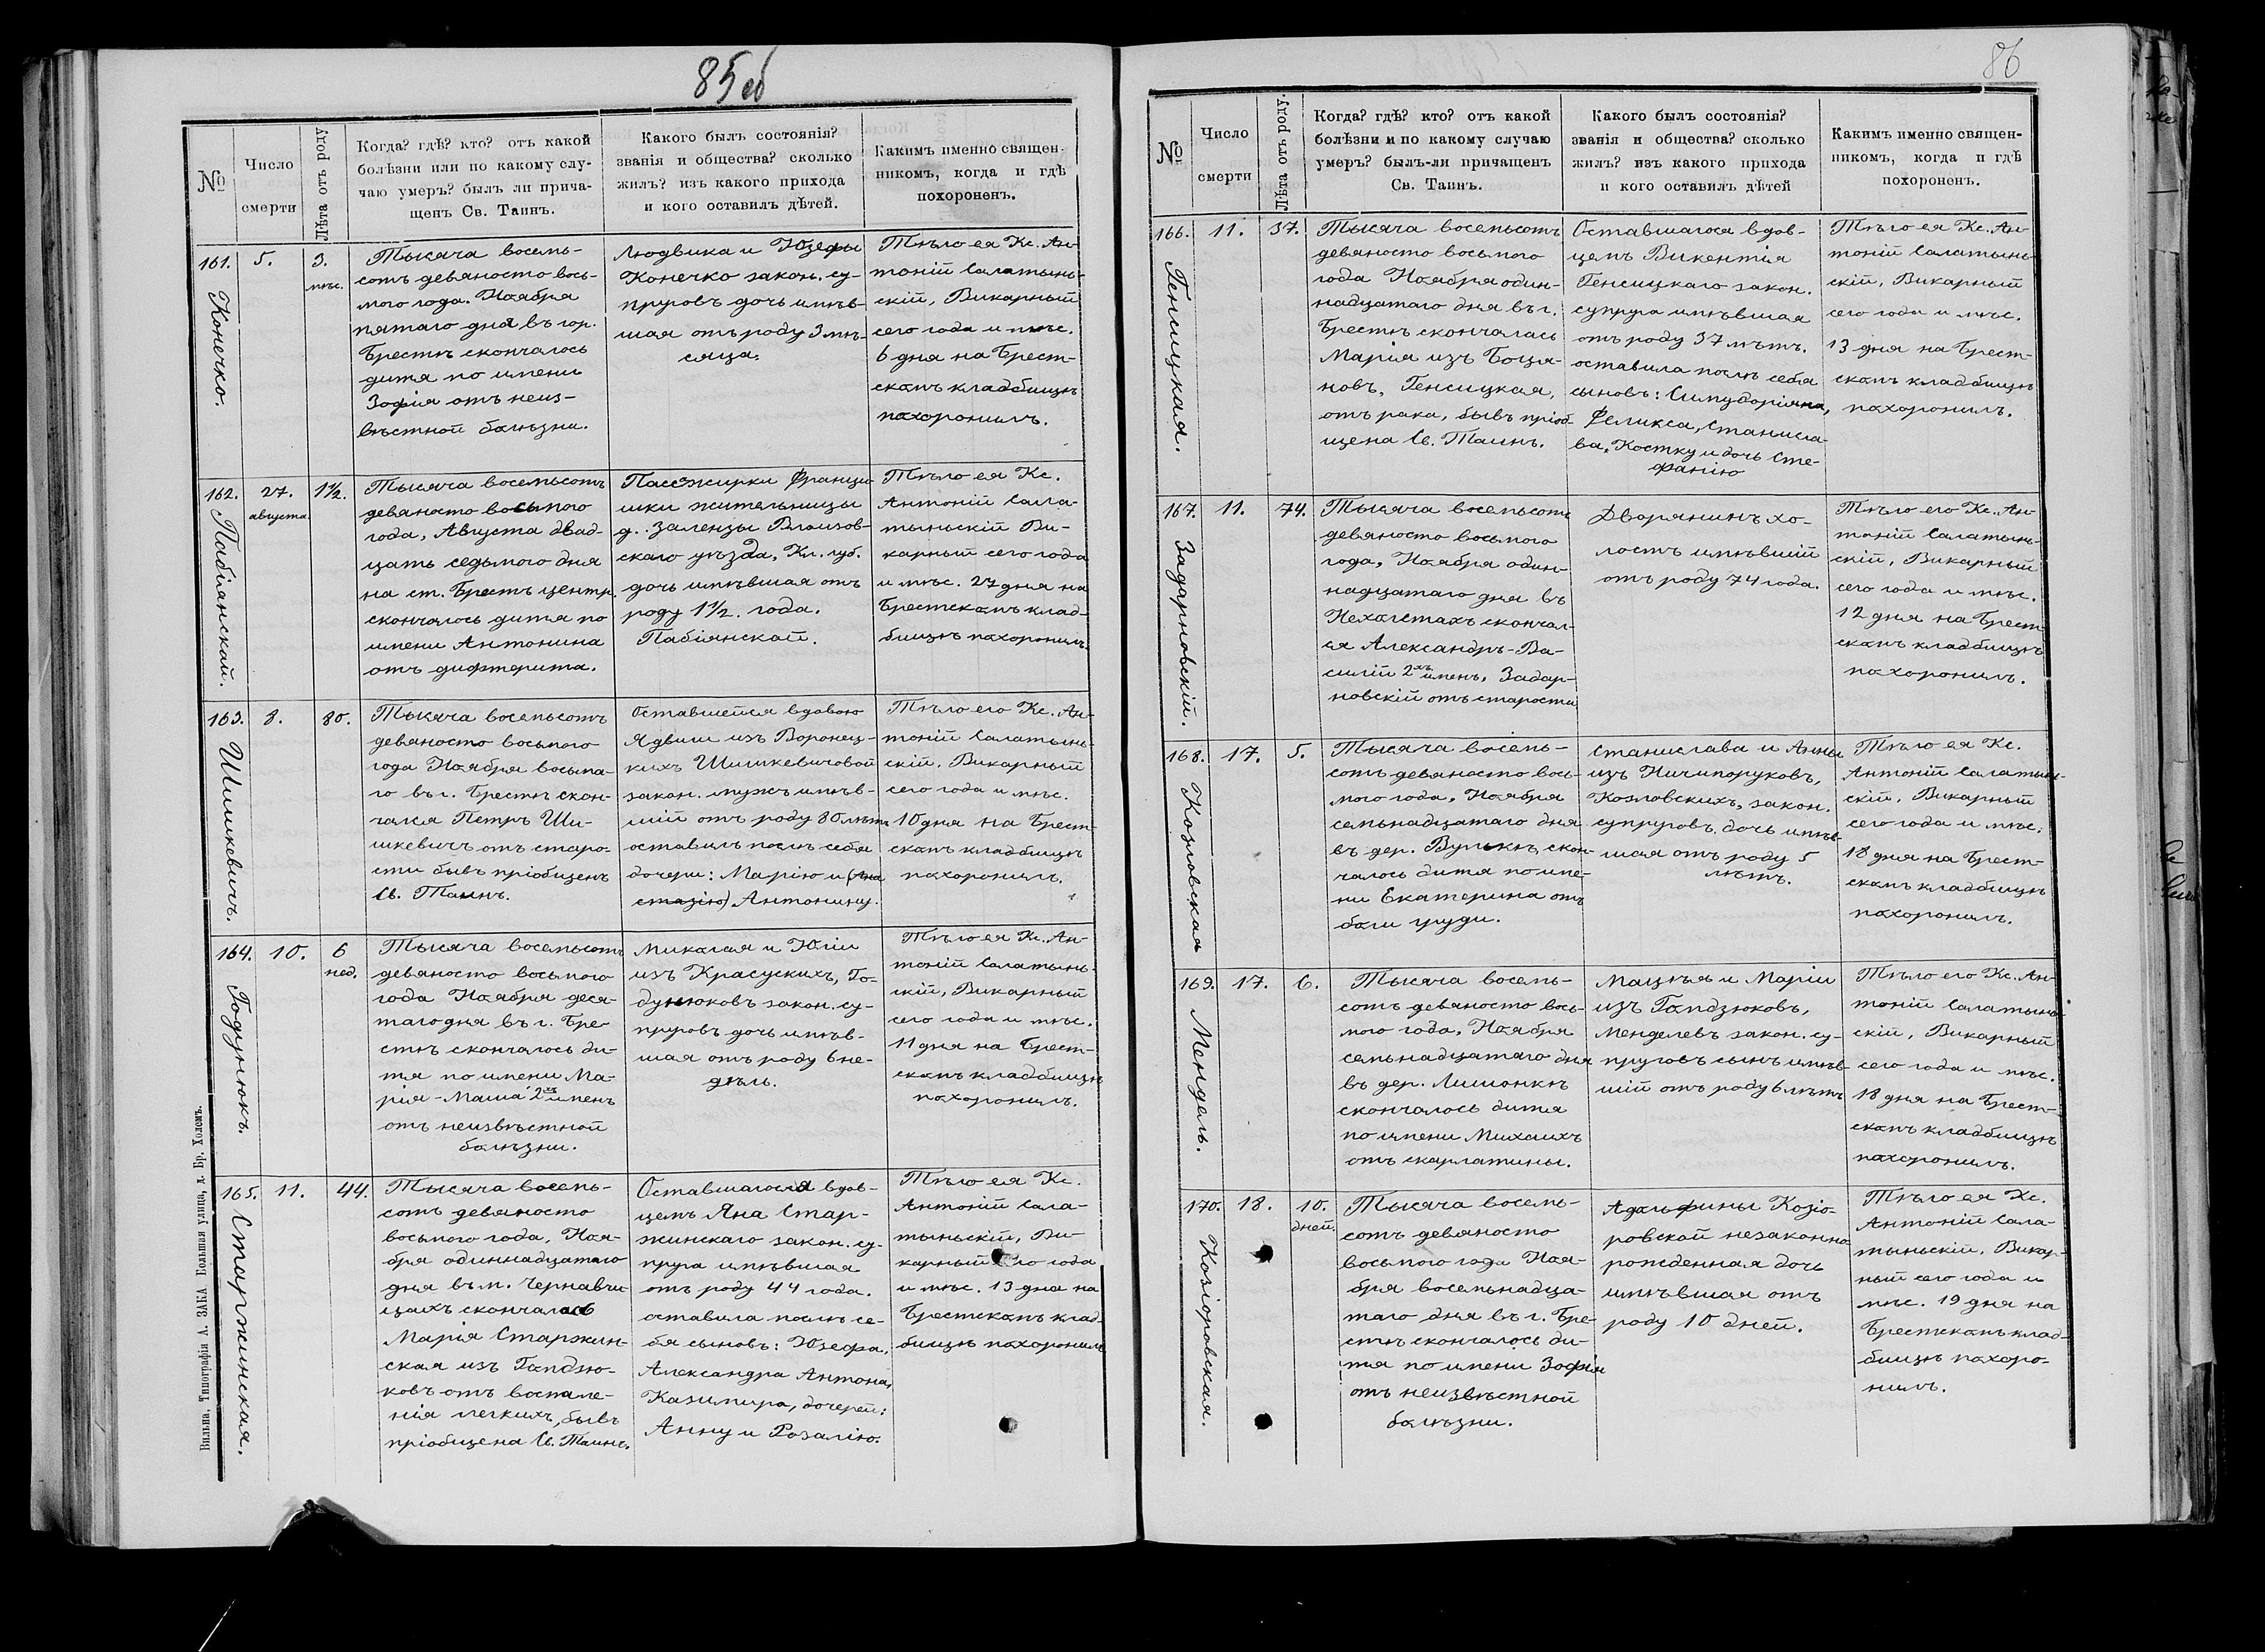 85 об
№
Число
смерти
Лѣта отъ роду
Когда? гдѣ? кто? отъ какой
болѣзни или по какому слу-
чаю умеръ? былъ ли прича-
щенъ Св. Таинъ.
Какого былъ состоянія?
званія и общества? сколько
жилъ? изъ какого прихода
и кого оставилъ дѣтей.
Какимъ именно священ-
никомъ, когда и гдѣ
похороненъ.
161.
Конечко.
5.
3.
мѣс.
Тысяча восемь-
сотъ девяносто вось-
мого года. Ноября
пятаго дня въ гор.
Брестѣ скончалось
дитя по имени
Зофія отъ неиз-
вѣстной болѣзни.
Людвика и Юзефы
Конечко закон. су-
пруговъ дочь имѣв-
шая отъ роду 3 мѣ-
сяца.
Тѣло ея Кс. Ан-
тоній Салатынь-
скій, Викарный
сего года и мѣс.
6 дня на Брест-
скомъ кладбищѣ
похоронилъ.
162.
Побіянской.
27.
августа
1½.
Тысяча восемьсотъ
девяносто восьмого
года, Августа двад-
цать седьмого дня
на ст. Брестъ центр.
скончалось дитя по
имени Антонина
отъ дифтерита.
Пассажирки Францы-
шки жительницы
д. Заленцы Влоцов-
скаго уѣзда, Кл. губ.
дочь имѣвшая отъ
роду 1½. года.
Пабіянской.
Тѣло ея Кс.
Антоній Сала-
тыньскій Ви-
карный сего года
и мѣс. 27 дня на
Брестскомъ клад-
бищѣ похоронилъ.
163.
Шишкевичъ.
8.
80.
Тысяча восемьсотъ
девяносто восьмого
года Ноября восьма-
го въ г. Брестѣ скон-
чался Петръ Ши-
шкевичъ отъ старо-
сти бывъ пріобщенъ
Св. Таинъ.
Оставшейся вдовою
Ядвиги изъ Воронец-
кихъ Шишкевичовой
закон. мужъ имѣв-
шій отъ роду 80 лѣтъ
оставилъ послѣ себя
дочери: Марію и (Ана
стазію) Антонину.
Тѣло его Кс. Ан-
тоній Салатынь-
скій, Викарный
сего года и мѣс.
10 дня на Брест-
скомъ кладбищѣ
похоронилъ.
164.
Годунюкъ.
10.
6
нед.
Тысяча восемьсотъ
девяносто восьмого
года Ноября деся-
таго дня въ г. Бре-
стѣ скончалось ди-
тя по имени Ма-
рія-Маша 2хъ именъ
отъ неизвѣстной
болѣзни.
Миколая и Юліи
изъ Красускихъ, Го-
дунюковъ закон. су-
пруговъ дочь имѣв-
шая отъ роду 6 не-
дѣль.
Тѣло ея Кс. Ан-
тоній Салатынь-
скій, Викарный
сего года и мѣс.
11 дня на Брест-
скомъ кладбищѣ
похоронилъ.
165.
Старжинская.
11.
44.
Тысяча восемь-
сотъ девяносто
восьмого года, Ноя-
бря одиннадцатаго
дня въ м. Чернавчи-
цахъ скончалась
Марія Старжин-
ская изъ Гапдзю-
ковъ отъ воспале-
нія легкихъ, бывъ
пріобщена Св. Таинъ.
Оставшагося вдов-
цемъ Яна Стар-
жинскаго закон. су-
пруга имѣвшая
отъ роду 44 года.
оставила послѣ се-
бя сыновъ: Юзефа,
Александра Антона,
Казимира, дочерей:
Анну и Розалію.
Тѣло ея Кс.
Антоній Сала-
тыньскій, Ви-
карный сего года
и мѣс. 13 дня на
Брестскомъ клад-
бищѣ похоронилъ
Вильна, Типографія А. ЗАКА Большая улица, д. Бр. Холемъ.
86
№
Число
смерти
Лѣта отъ роду.
Когда? гдѣ? кто? отъ какой
болѣзни и по какому случаю
умеръ? былъ-ли причащенъ
Св. Таинъ.
Какого былъ состоянія?
званія и общества? сколько
жилъ? изъ какого прихода
и кого оставилъ дѣтей
Какимъ именно священ-
никомъ, когда и гдѣ
похороненъ.
166.
Генсицкая.
11.
37.
Тысяча восемьсотъ
девяносто восьмого
года Ноября один-
надцатаго дня въ г.
Брестѣ скончалась
Марія изъ Боця-
новъ, Генсицкая,
отъ рака, бывъ пріоб-
щена Св. Таинъ.
Оставшагося вдов-
цемъ Викентія
Генсицкаго закон.
супруга имѣвшая
отъ роду 37 лѣтъ.
оставила послѣ себя
сыновъ: Симфоріяна,
Феликса, Станисла-
ва, Костку и дочь Сте-
фанію
Тѣло ея Кс. Ан-
тоній Салатынь-
скій, Викарный
сего года и мѣс.
13 дня на Брест-
скомъ кладбищѣ
похоронилъ.
167.
Задарновскій.
11.
74.
Тысяча восемьсотъ
девяносто восьмого
года, Ноября один-
надцатаго дня въ
Нехолстахъ скончал-
ся Александръ-Ва-
силій 2хъ именъ, Задар-
новскій отъ старости
Дворянинъ хо-
лостъ имѣвшій
отъ роду 74 года.
Тѣло его Кс. Ан-
тоній Салатынь-
скій, Викарный
сего года и мѣс.
12 дня на Брест-
скомъ кладбищѣ
похоронилъ.
168.
Козловская
17.
5.
Тысяча восемь-
сотъ девяносто вось-
мого года, Ноября
семьнадцатаго дня
въ дер. Вулькѣ, скон-
чалось дитя по име-
ни Екатерина отъ
боли груди.
Станислава и Анны
изъ Ничипоруковъ,
Козловскихъ, закон.
супруговъ, дочь имѣв-
шая отъ роду 5
лѣтъ.
Тѣло ея Кс.
Антоній Салатынь-
скій, Викарный
сего года и мѣс.
18 дня на Брест-
скомъ кладбищѣ
похоронилъ.
169.
Мендель.
17.
6.
Тысяча восемь-
сотъ девяносто вось-
мого года, Ноября
семьнадцатаго дня
въ дер. Лишонкѣ
скончалось дитя
по имени Михаилъ
отъ скарлатины.
Мацѣя и Маріи
изъ Гапдзюковъ,
Менделевъ закон. су-
пруговъ сынъ имѣв-
шій отъ роду 6 лѣтъ
Тѣло его Кс. Ан-
тоній Салатынь-
скій, Викарный
сего года и мѣс.
18 дня на Брест-
скомъ кладбищѣ
похоронилъ.
170.
Козіоровская.
18.
10.
дней.
Тысяча восемь-
сотъ девяносто
восьмого года Ноя-
бря восемьнадца-
таго дня въ г. Бре-
стѣ скончалось ди-
тя по имени Зофія
отъ неизвѣстной
болѣзни.
Адольфины Козіо-
ровской незаконно-
рожденная дочь
имѣвшая отъ
роду 10 дней.
Тѣло ея Кс.
Антоній Сала-
тыньскій, Викар-
ный сего года и
мѣс. 19 дня на
Брестскомъ клад-
бищѣ похоро-
нилъ.